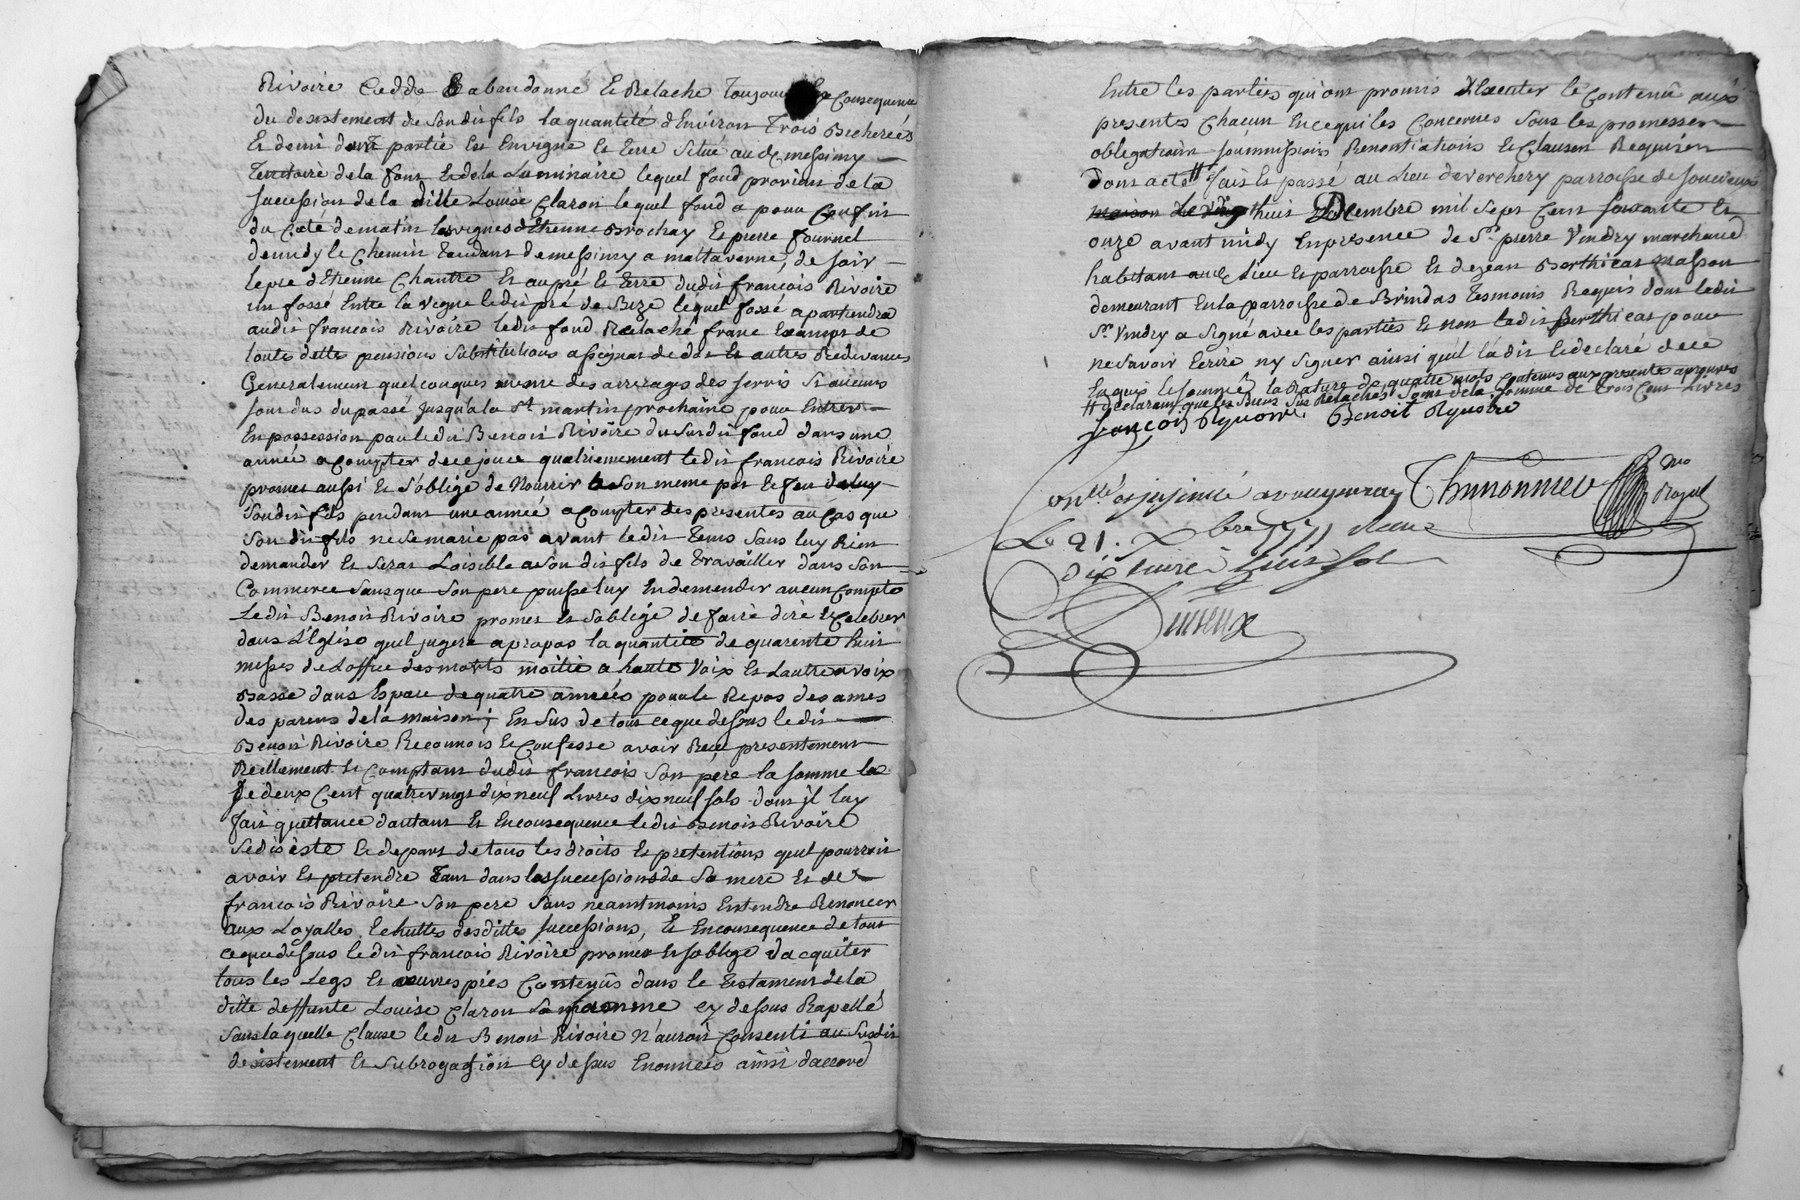 Rivoire Cedde & abandonné Et Relache Toujours En Consequence
du desistement de Son dit fils la quantité d'Environ Trois Bicherées
Et demi dont partie En Envigne Et Terre Situé au de messimy
Territoire de la font Et de la Luminaire lequel fond provient de la
succession de la ditte Louise Claron lequel fond a pour Confin
du Coté de matin les vignes d'Etienne Brochay Et pierre fournel
de midy le Chemin Tendant de messimy a maltaverne, de soir
le pré d'Etienne Chantre Et au pré Et Terre dudit francois Rivoire
un fossé Entre la vigne ledit pré de Bize lequel fossé apartiendra
audit francois Rivoire ledit fond Relaché franc Exempt de
toute dette pensions Substitutions assignat de dot Et autres Redevances
Generalement quelconques mesme des arrerages des servis Si aucuns
sont dus du passé jusqu'a la St martin prochaine pour Entrer
En possession par ledit Benoit Rivoire du Susdit fond dans une
année a Compter de ce jour quatriemement ledit francois Rivoire
promet aussi Et S'oblige de Nourrir a Son meme pot Et feu
Son dit fils pendant une année a Compter des presentes au Cas que
Son dit fils ne Se marie pas avant ledit Tems Sans luy Rien
demander Et Serat Loisible a Son dit fils de Travailler dans Son
Commerce Sans que Son pere puisse luy En demender aucun Compte
Ledit Benoit Rivoire promet Et S'oblige de faire dire Et Celebrer
dans L'Eglise quil jugera a propos la quantité de quarente huit
messes de L'offue des morts moitié a haute Voix Et L'autre a voix
Basse dans Espace de quatre années pour le Repos des ames
des parens de la maison; En Sus de tout ce que dessus ledit
Benoit Rivoire Reconnois Et Confesse avoir Reçu presentement
Reellement Et Comptant dudit francois Son père la somme
de deux Cent quatrevingt dix neuf Livres dix neuf sols dont il luy
fait quettance d'autant Et En consequence ledit Benoit Rivoire
Se disiste Et depart de tous les droits Et pretentions quil pourroit
avoir Et pretendre Tant dans les successions de Sa mere Et de
francois Rivoire Son pere Sans neamtmoins Entendre Renoncer
aux Loyalles Echuttes desdittes successions, Et En consequence de tout
ce que dessus ledit francois Rivoire promet Et s'oblige d'acquiter
tous les Legs Et œuvres pies Contenus dans le Testament de la
ditte deffunte Louise Claron Sa femme cy dessus Rapellé
Sans laquelle Clause ledit Benoit Rivoire N'auroit Consenti au Susdit
desistement Et Subrogation cy dessus Enonncés ainsi d'accord
Entre les parties qui ont promis d'Executer le Contenu aux
presentes Chacun En ce qui les Concernes Sous les promesses
obligations Soummissions Renontiations Et Clauses Requises
dont acte # fait Et passé au Lieu de verchery parroisse de Soucieux
maison Le vingt huit Décembre mil Sept Cent Soixante Et
onze avant midy En presence de Sr pierre Vindry marchand
habitant audit Lieu Et parroisse Et de Jean Berthicat Masson
demeurant En la parroisse de Brindas Tesmoins Requis dont ledit
Sr Vindry a Signé avec les parties Et non ledit Berthicat pour
ne Savoir Ecrire ny Signer ainsi qu'il l'a dit Et declaré de ce
Enquis Et Sommé la Rature de quatre mots Contenus aux presente aprouvés
# declarant que les Biens Sus Relachés Sont de la Somme de trois Cent Livres
françois Benoit
Thimonnier
Royal